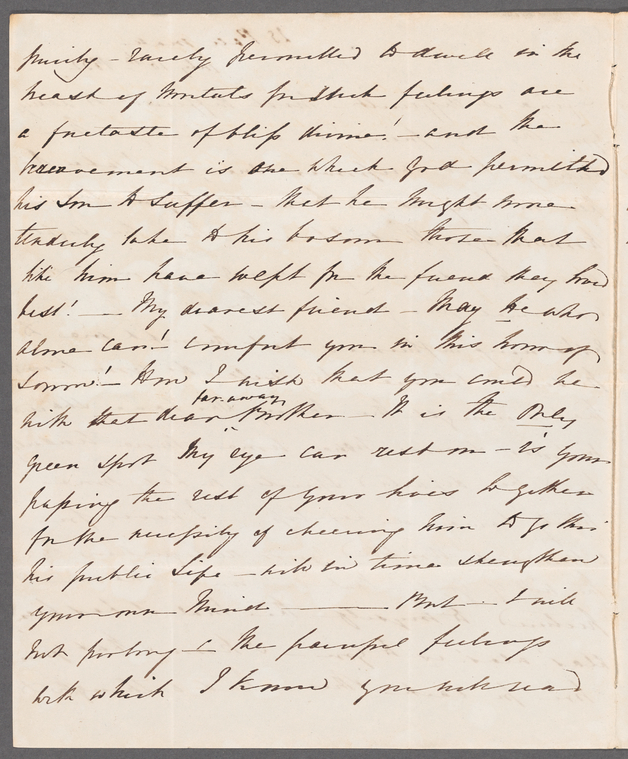 purity - rarely permitted to dwell in the
heart of Mortals for such feelings are
a foretaste of bliss divine! - and the
bereavement is one which God permitted
his Son to suffer - that he might more
tenderly take to his bosom those that
like him have wept for the friend they lov'd
best! - My dearest friend - May He who
alone can! comfort you in this hour of
Sorrow! - How I wish that you could be
with that dear far away Brother - It is the only
green spot My eye can rest on - is your
passing the rest of your lives together
for the necessity of cheering him to go thro
his public Life - will in time strengthen
your own Mind - But - I will
not prolong - the painful feelings
with which I know you will read